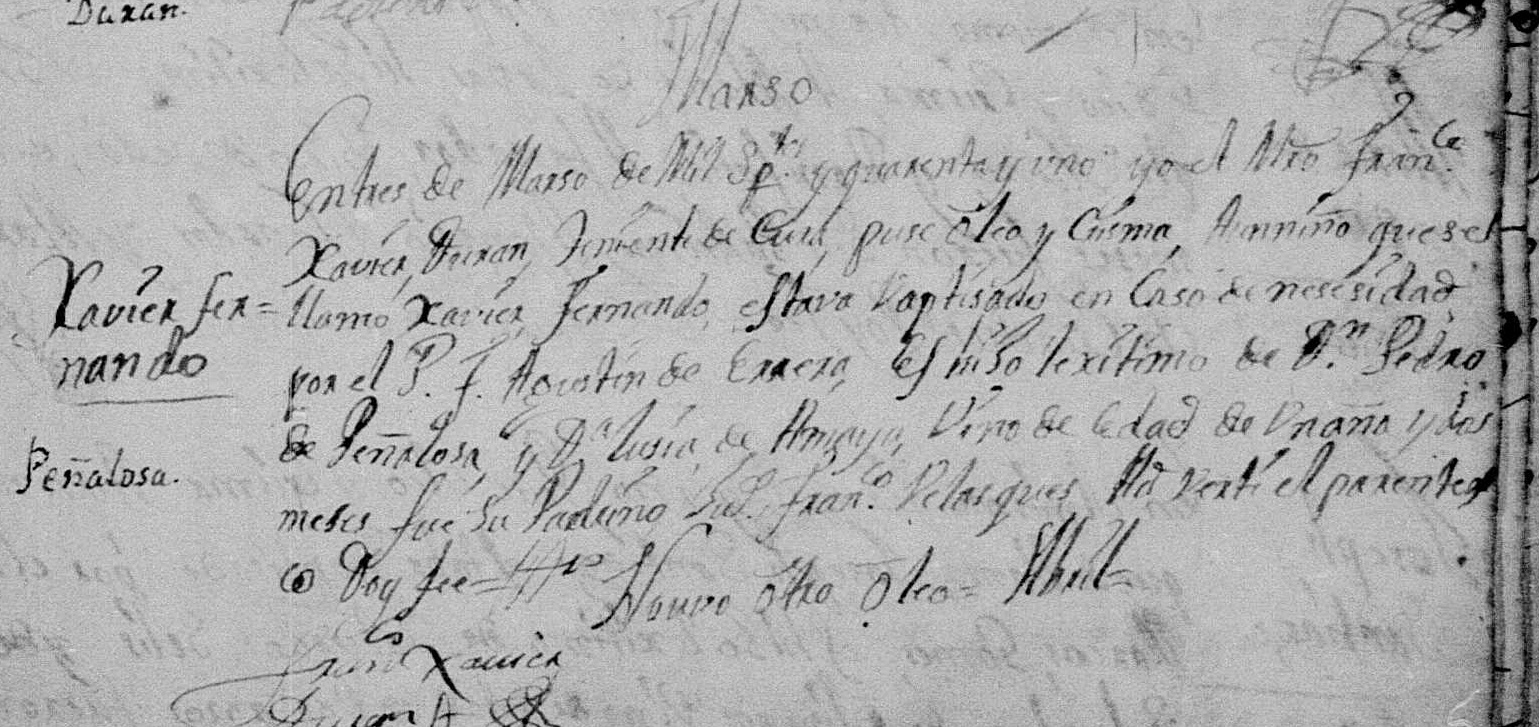 Duran.
Marso
En tres de Marso de Mil Sp.tos y quarenta y uno yo el Mro Fran.co
Xavier Duran, Teniente de Cura, puse Oleo y Crisma, A un niño que se
llamó Xavier Fernando, estava Vaptisado en Caso de nesesidad
por el P. F. Agustin de Errera, Es hiso lexitimo de D.n Pedro
de Peñalosa, y D.a Lusia de Amaya, Vino de Edad de Un año y dos
meses fue su Padrino Fran.co Velasques Ad vertí el parentes
co Doy fee =
No uvo otro Oleo = Abril =
Xavier Fer=
nando
Peñalosa.
Fran.co Xavier
Duran